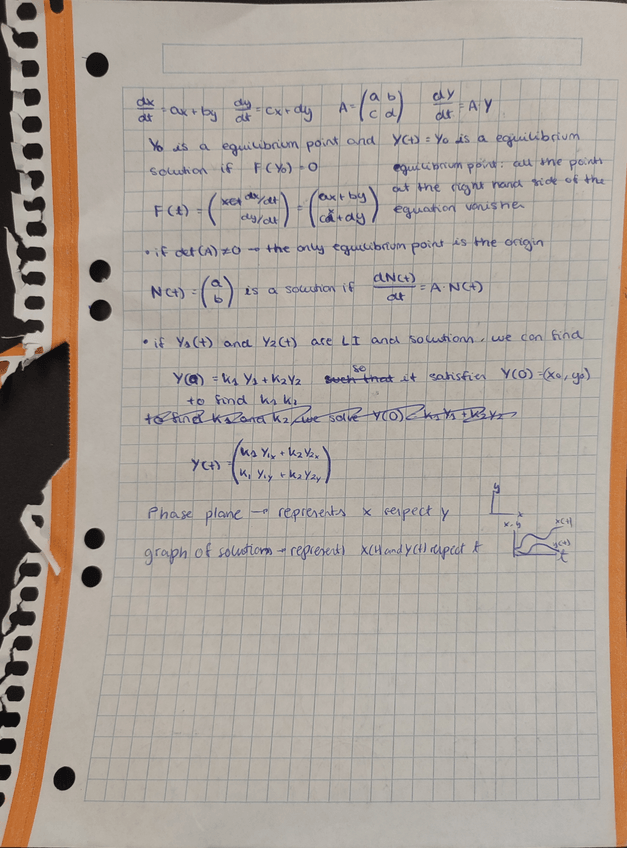 dx/dt = ax + by   dy/dt = cx + dy   A = (a b / c d)   dY/dt = A·Y
Y₀ is a equilibrium point and Y(t) = Y₀ is a equilibrium
solution if F(Y₀) = 0
equilibrium point: all the points
at the right hand side of the
equation vanishes
F(t) = (dx/dt / dy/dt) = (ax + by / cx + dy)
• if det(A) ≠ 0 → the only equilibrium point is the origin
N(t) = (a / b) is a solution if dN(t)/dt = A·N(t)
• if Y₁(t) and Y₂(t) are LI and solutions, we can find
Y(0) = k₁ Y₁ + k₂ Y₂ such that so it satisfies Y(0) = (x₀, y₀)
to find k₁ k₂
to find k₁ and k₂, we solve Y(0) = k₁Y₁ + k₂Y₂
Y(t) = (k₁ Y₁ₓ + k₂ Y₂ₓ / k₁ Y₁y + k₂ Y₂y)
Phase plane → represents x respect y
y
x
graph of solutions → represent x(t) and y(t) respect t
x, y
x(t)
y(t)
t